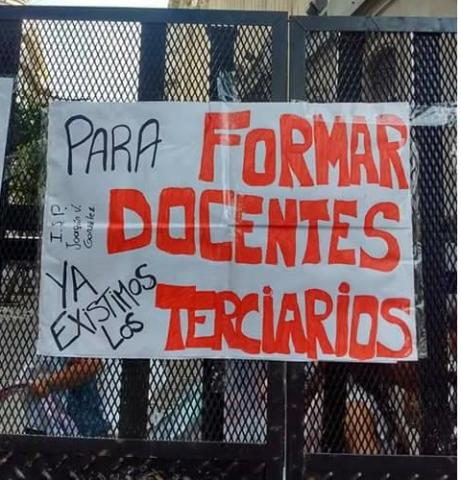 PARA FORMAR
DOCENTES
I.S.P.
Joaquín V.
González
YA
EXISTIMOS
LOS
TERCIARIOS